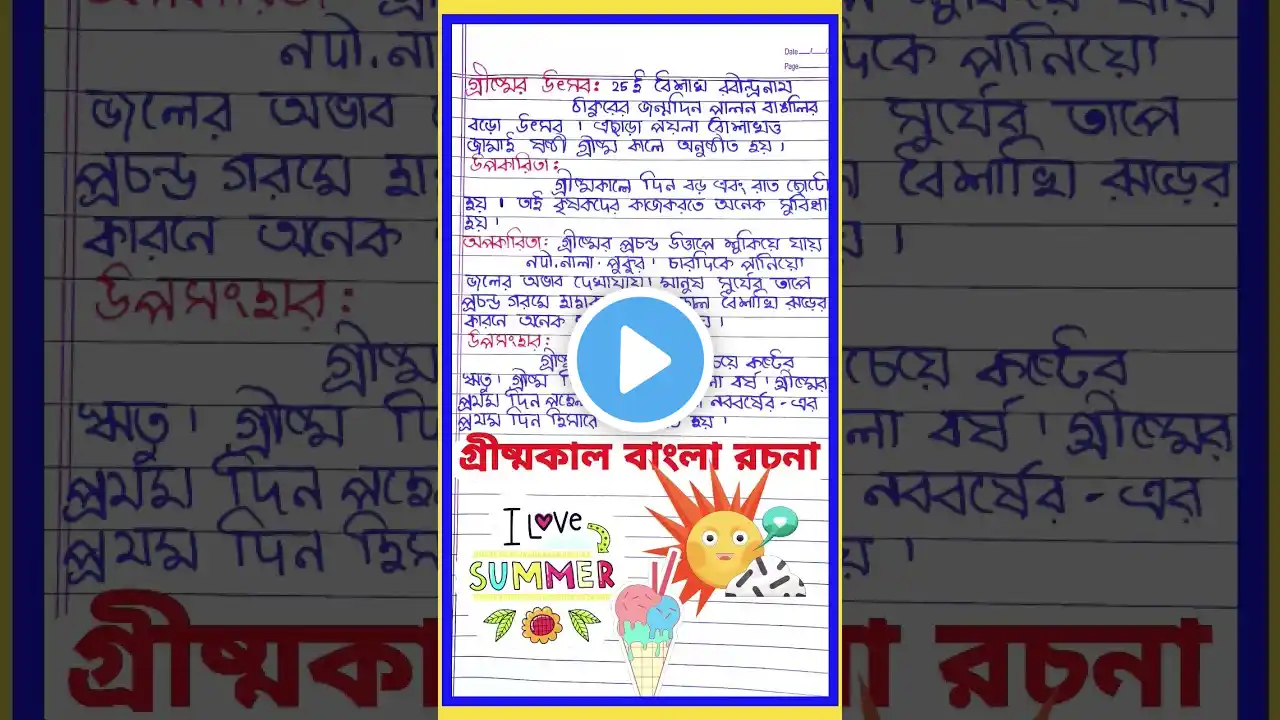 Date
Page
গ্রীষ্মের উৎসব: 25ই বৈশাখ রবীন্দ্রনাথ
ঠাকুরের জন্মদিন পালন বাঙালির
বড়ো উৎসব । এছাড়া পয়লা বৈশাখও
জামাই ষষ্ঠী গ্রীষ্ম কালে অনুষ্ঠীত হয় ।
উপকারিতা:
গ্রীষ্মকালে দিন বড় এবং রাত ছোটো
হয় । তাই কৃষকদের কাজকরতে অনেক সুবিধা
হয় ।
অপকারিতা: গ্রীষ্মের প্রচন্ড উত্তাপে শুকিয়ে যায়
নদী.নালা. পুকুর । চারদিকে পানিয়ো
জলের অভাব দেখাযায়। মানুষ সুর্যের তাপে
প্রচন্ড গরমে বৈশাখি ঝড়ের
কারনে অনেক
উপসংহার:
চেয়ে কষ্টের
ঋতু । গ্রীষ্ম বর্ষ । গ্রীষ্মের
প্রথম দিন নববর্ষের - এর
প্রথম দিন হিসাবে হয় ।
গ্রীষ্মকাল বাংলা রচনা
I LOVE
SUMMER